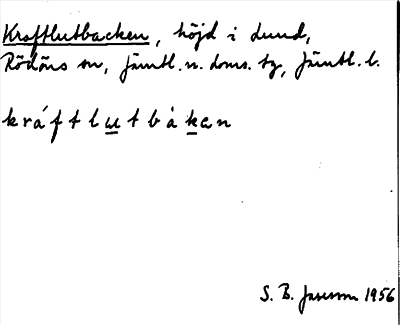 Kraftlutbacken, höjd i Lund,
Rödöns sn, Jämtl. n. doms. tg, Jämtl. l.
kráftlutbàkan
S. B. 1956